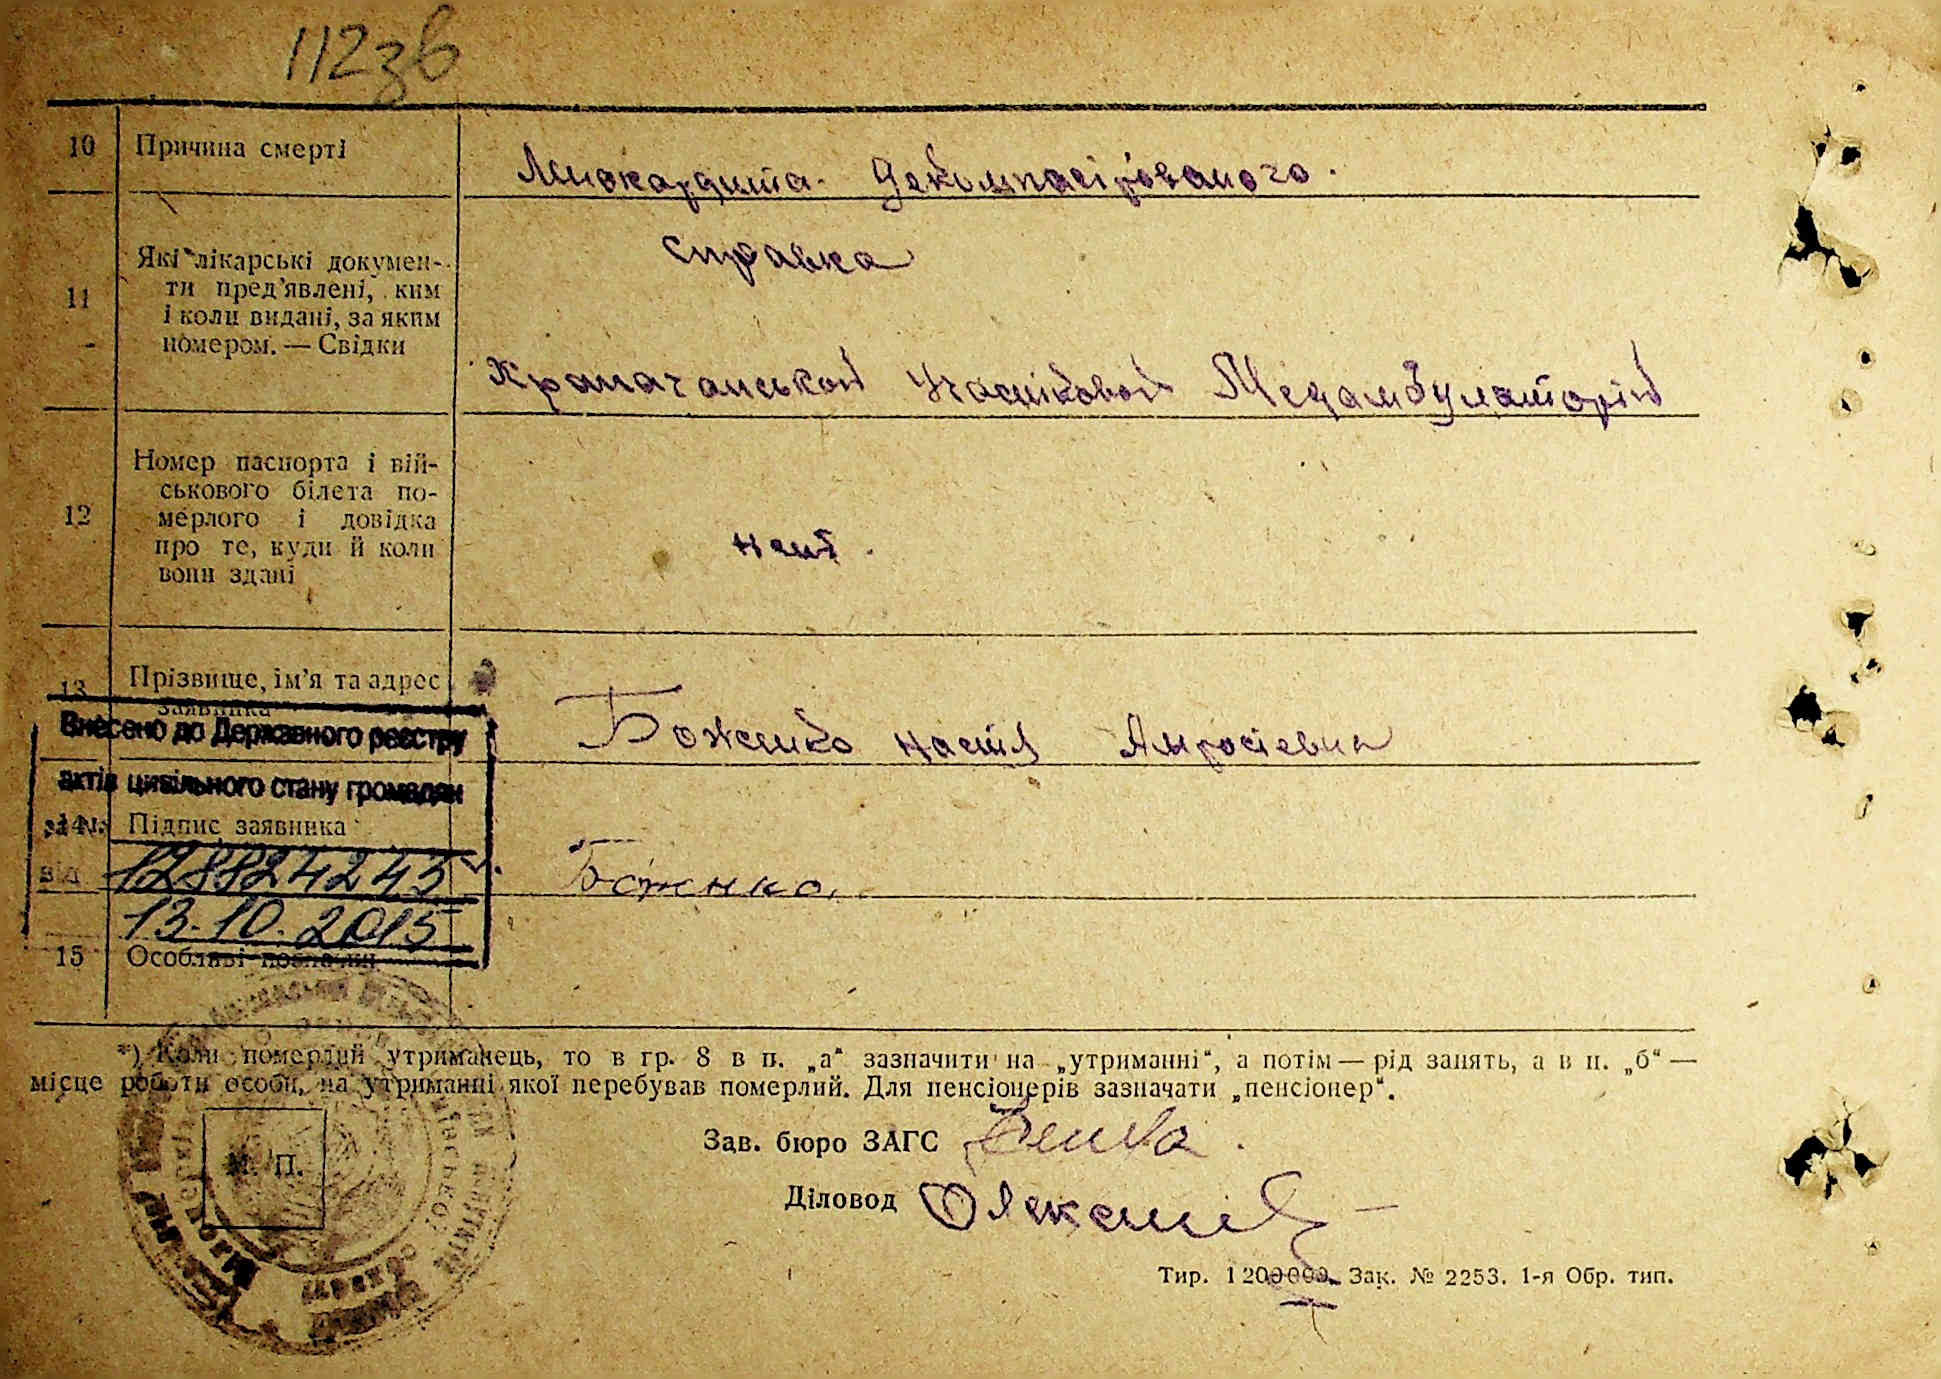 112зв
10 Причина смерті
Миокардита декомпасірованого.
Які лікарські докумен-
ти пред'явлені, ким
11
і коли видані, за яким
номером. — Свідки
справка
Храмачанськой Участковой Медамбулаторій
Номер паспорта і вій-
ськового білета по-
12 мерлого і довідка
про те, куди й коли
вони здані
нет.
13 Прізвище, ім'я та адрес
заявника
Боженко настя Амросіевна
Внесено до Державного реєстру
актів цивільного стану громадян
за №
14 Підпис заявника
Боженко.
128824243
від
13.10.2015
15 Особливі позначки
*) Коли померлий утриманець, то в гр. 8 в п. „а“ зазначити на „утриманні“, а потім — рід занять, а в п. „б“ —
місце роботи особи, на утриманні якої перебував померлий. Для пенсіонерів зазначати „пенсіонер“.
М. П.
Зав. бюро ЗАГС
Діловод
Тир. 1200000. Зак. № 2253. 1-я Обр. тип.